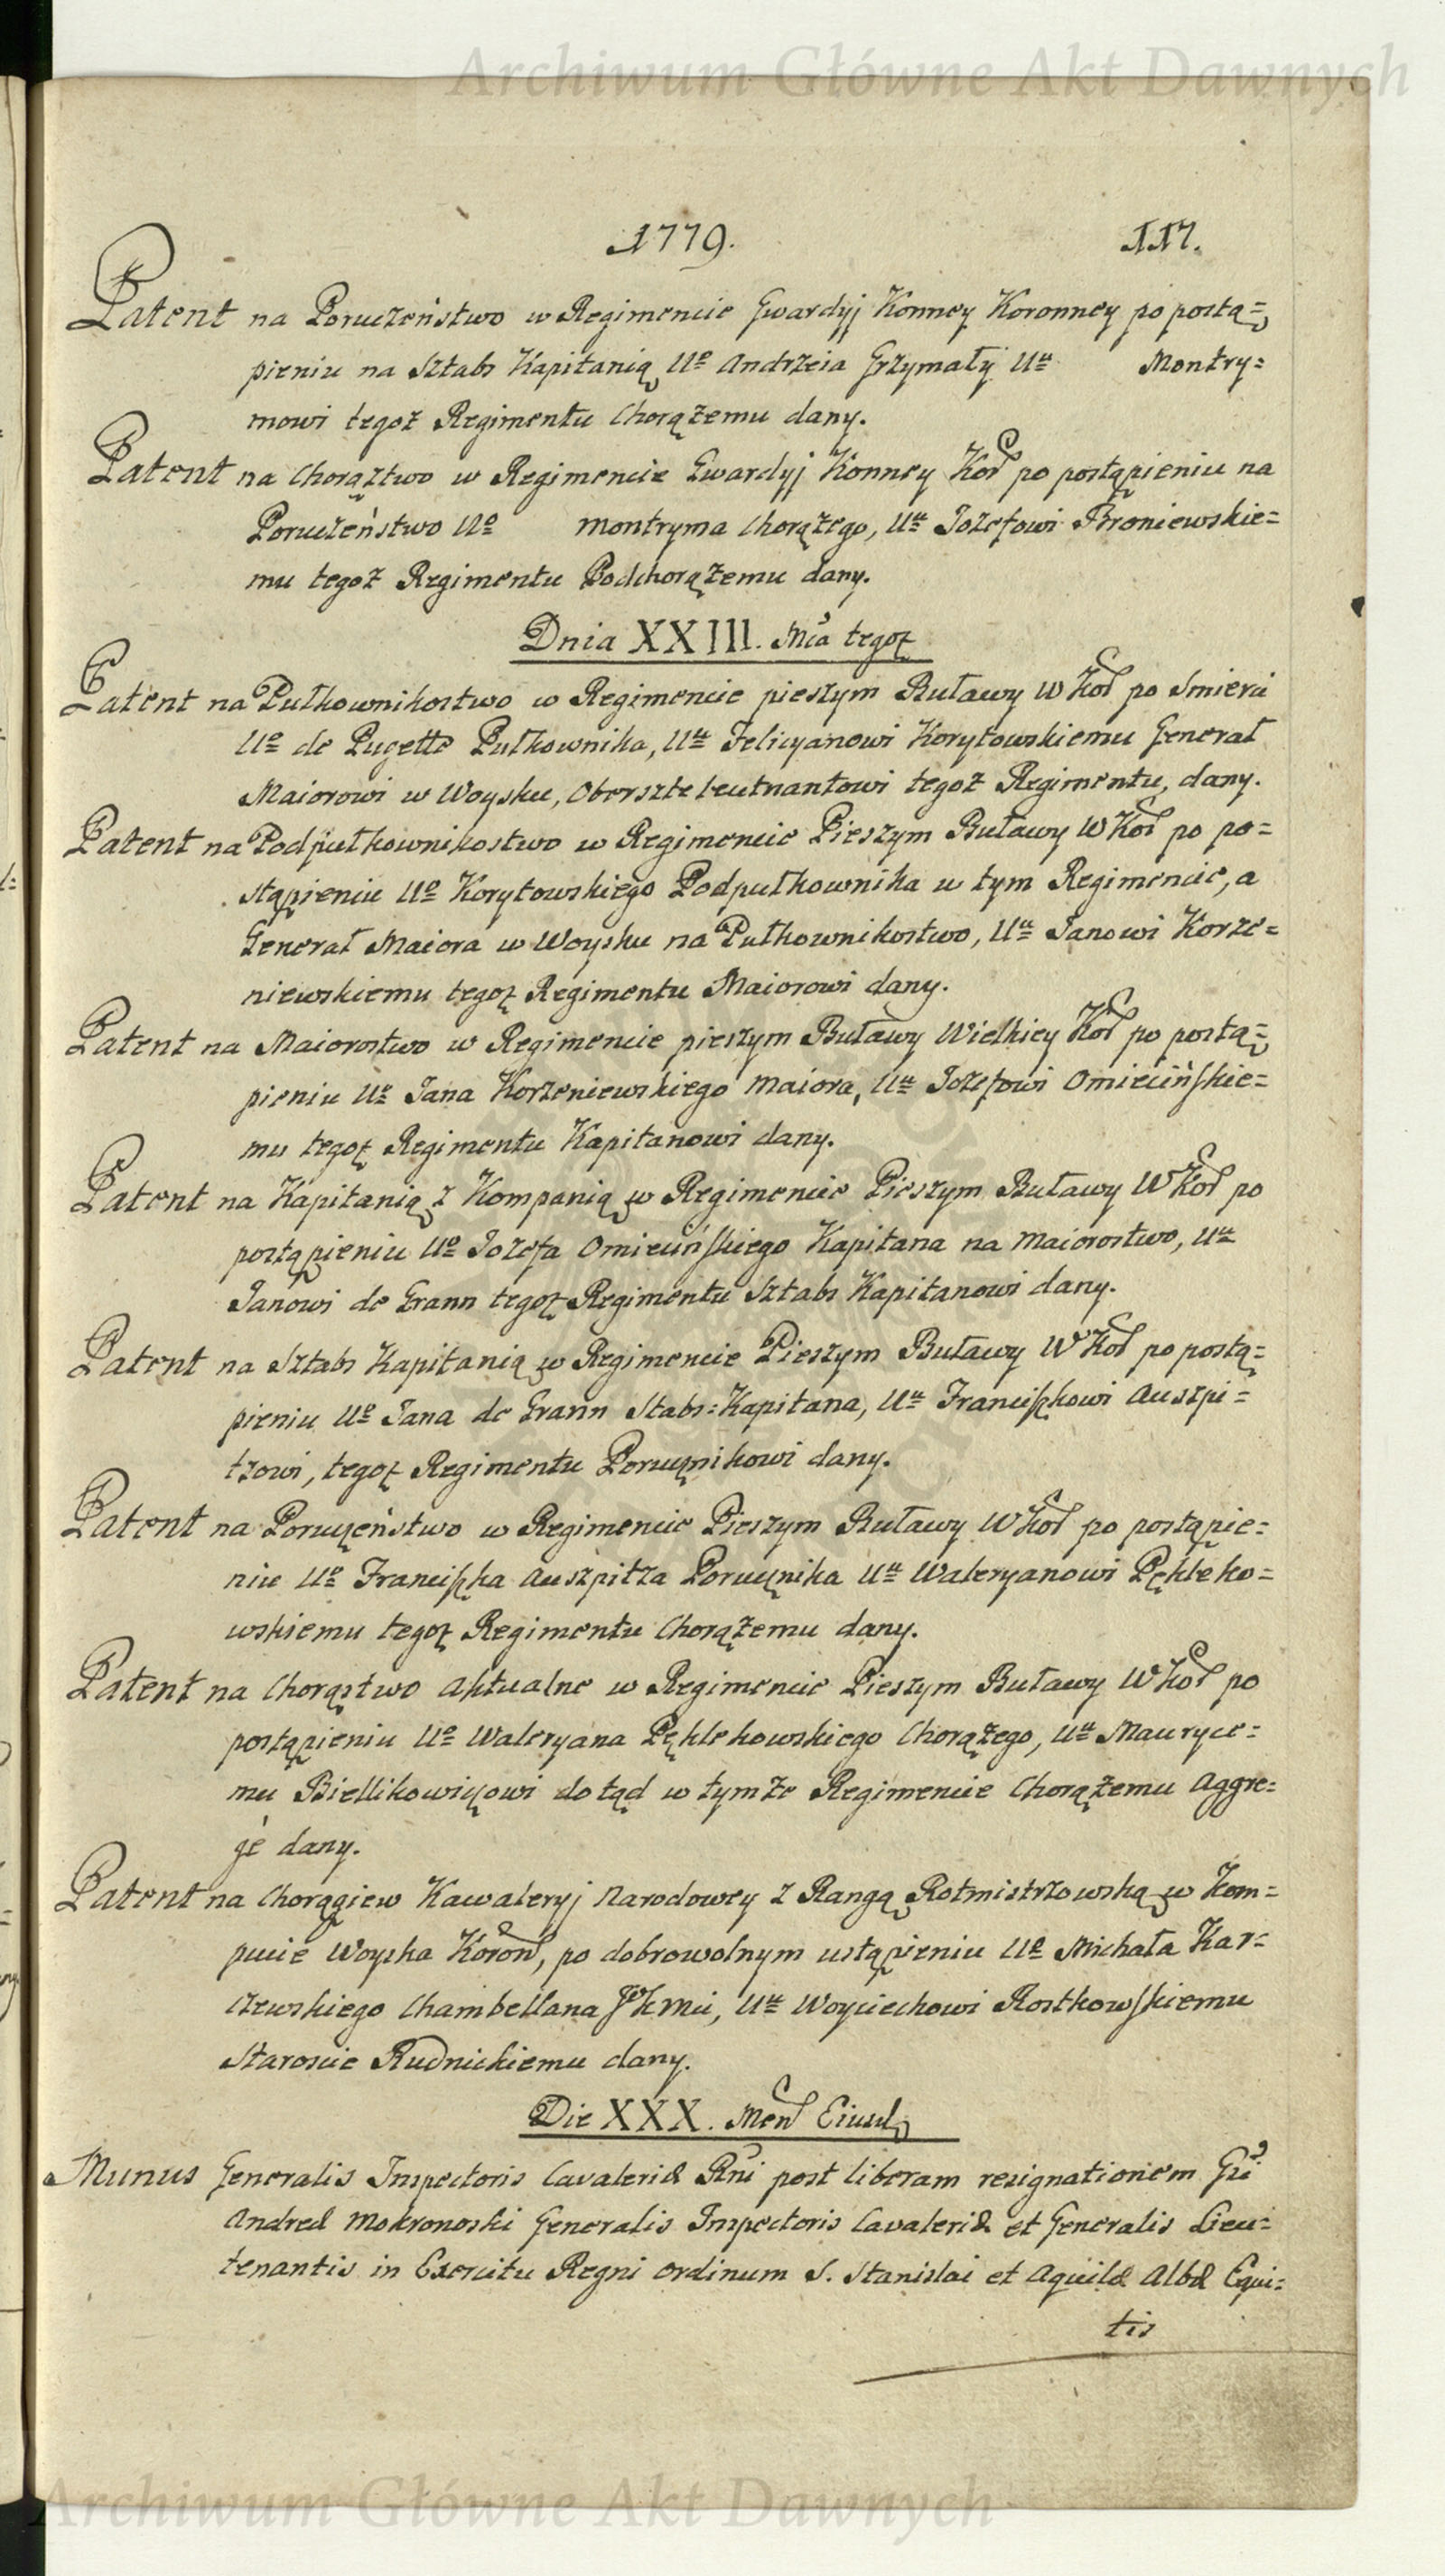 Archiwum Główne Akt Dawnych
1779.
117.
Patent na Poruczeństwo w Regimencie Gwardyj Konney Koronney po postą=
pieniu na Sztabs Kapitanią Uo Andrzeia Grzymały Uu Montry=
mowi tegoż Regimentu Chorążemu dany.
Patent na Chorąztwo w Regimencie Gwardyj Konney Kor po postąpieniu na
Poruczeństwo Uo Montryma Chorążego, Uu Jozefowi Broniewskie=
mu tegoż Regimentu Podchorążemu dany.
Dnia XXIII. Mca tegoż
Patent na Pułkownikostwo w Regimencie pieszym Buławy W Kor po Smierci
Uo de Pugette Pułkownika, Uu Felicyanowi Korytowskiemu Generał
Maiorowi w Woysku, Oberszteleutnantowi tegoż Regimentu, dany.
Patent na Podpułkownikostwo w Regimencie Pieszym Buławy W Kor po po=
stąpieniu Uo Korytowskiego Podpułkownika w tym Regimencie, a
Generał Maiora w Woysku na Pułkownikostwo, Uu Janowi Korze=
niewskiemu tegoż Regimentu Maiorowi dany.
Patent na Maiorostwo w Regimencie pieszym Buławy Wielkiey Kor po postą=
pieniu Uo Jana Korzeniewskiego Maiora, Uu Jozefowi Omiecińskie=
mu tegoż Regimentu Kapitanowi dany.
Patent na Kapitanią z Kompanią w Regimencie Pieszym Buławy W Kor po
postąpieniu Uo Jozefa Omiecińskiego Kapitana na Maiorostwo, Uu
Janowi de Grann tegoż Regimentu Sztabs Kapitanowi dany.
Patent na Sztabs Kapitanią w Regimencie Pieszym Buławy W Kor po postą=
pieniu Uo Jana de Grann Stabs=Kapitana, Uu Franciszkowi Auszpi=
tzowi, tegoż Regimentu Porucznikowi dany.
Patent na Poruczeństwo w Regimencie Pieszym Buławy W Kor po postąpie=
niu Uo Franciszka Auszpitza Porucznika Uu Waleryanowi Pękleko=
wskiemu tegoż Regimentu Chorążemu dany.
Patent na Chorąstwo Aktualne w Regimencie Pieszym Buławy W Kor po
postąpieniu Uo Waleryana Pęklekowskiego Chorążego, Uu Mauryce=
mu Biellikowiczowi dotąd w tymże Regimencie Chorążemu Aggre=
gé dany.
Patent na Chorągiew Kawaleryj Narodowey z Rangą Rotmistrzowską w Kom=
pucie Woyska Koron, po dobrowolnym ustąpieniu Uo Michała Kar=
czewskiego Chambellana JKMci, Uu Woyciechowi Rostkowskiemu
Staroscie Rudnickiemu dany.
Die XXX. Men Eiusd
Munus Generalis Inspectoris Cavaleriæ Rni post liberam resignationem Gsi
Andreæ Mokronoski Generalis Inspectoris Cavaleriæ et Generalis Lieu=
tenantis in Exercitu Regni Ordinum S. Stanislai et Aquilæ Albæ Equi=
tis
Archiwum Główne Akt Dawnych